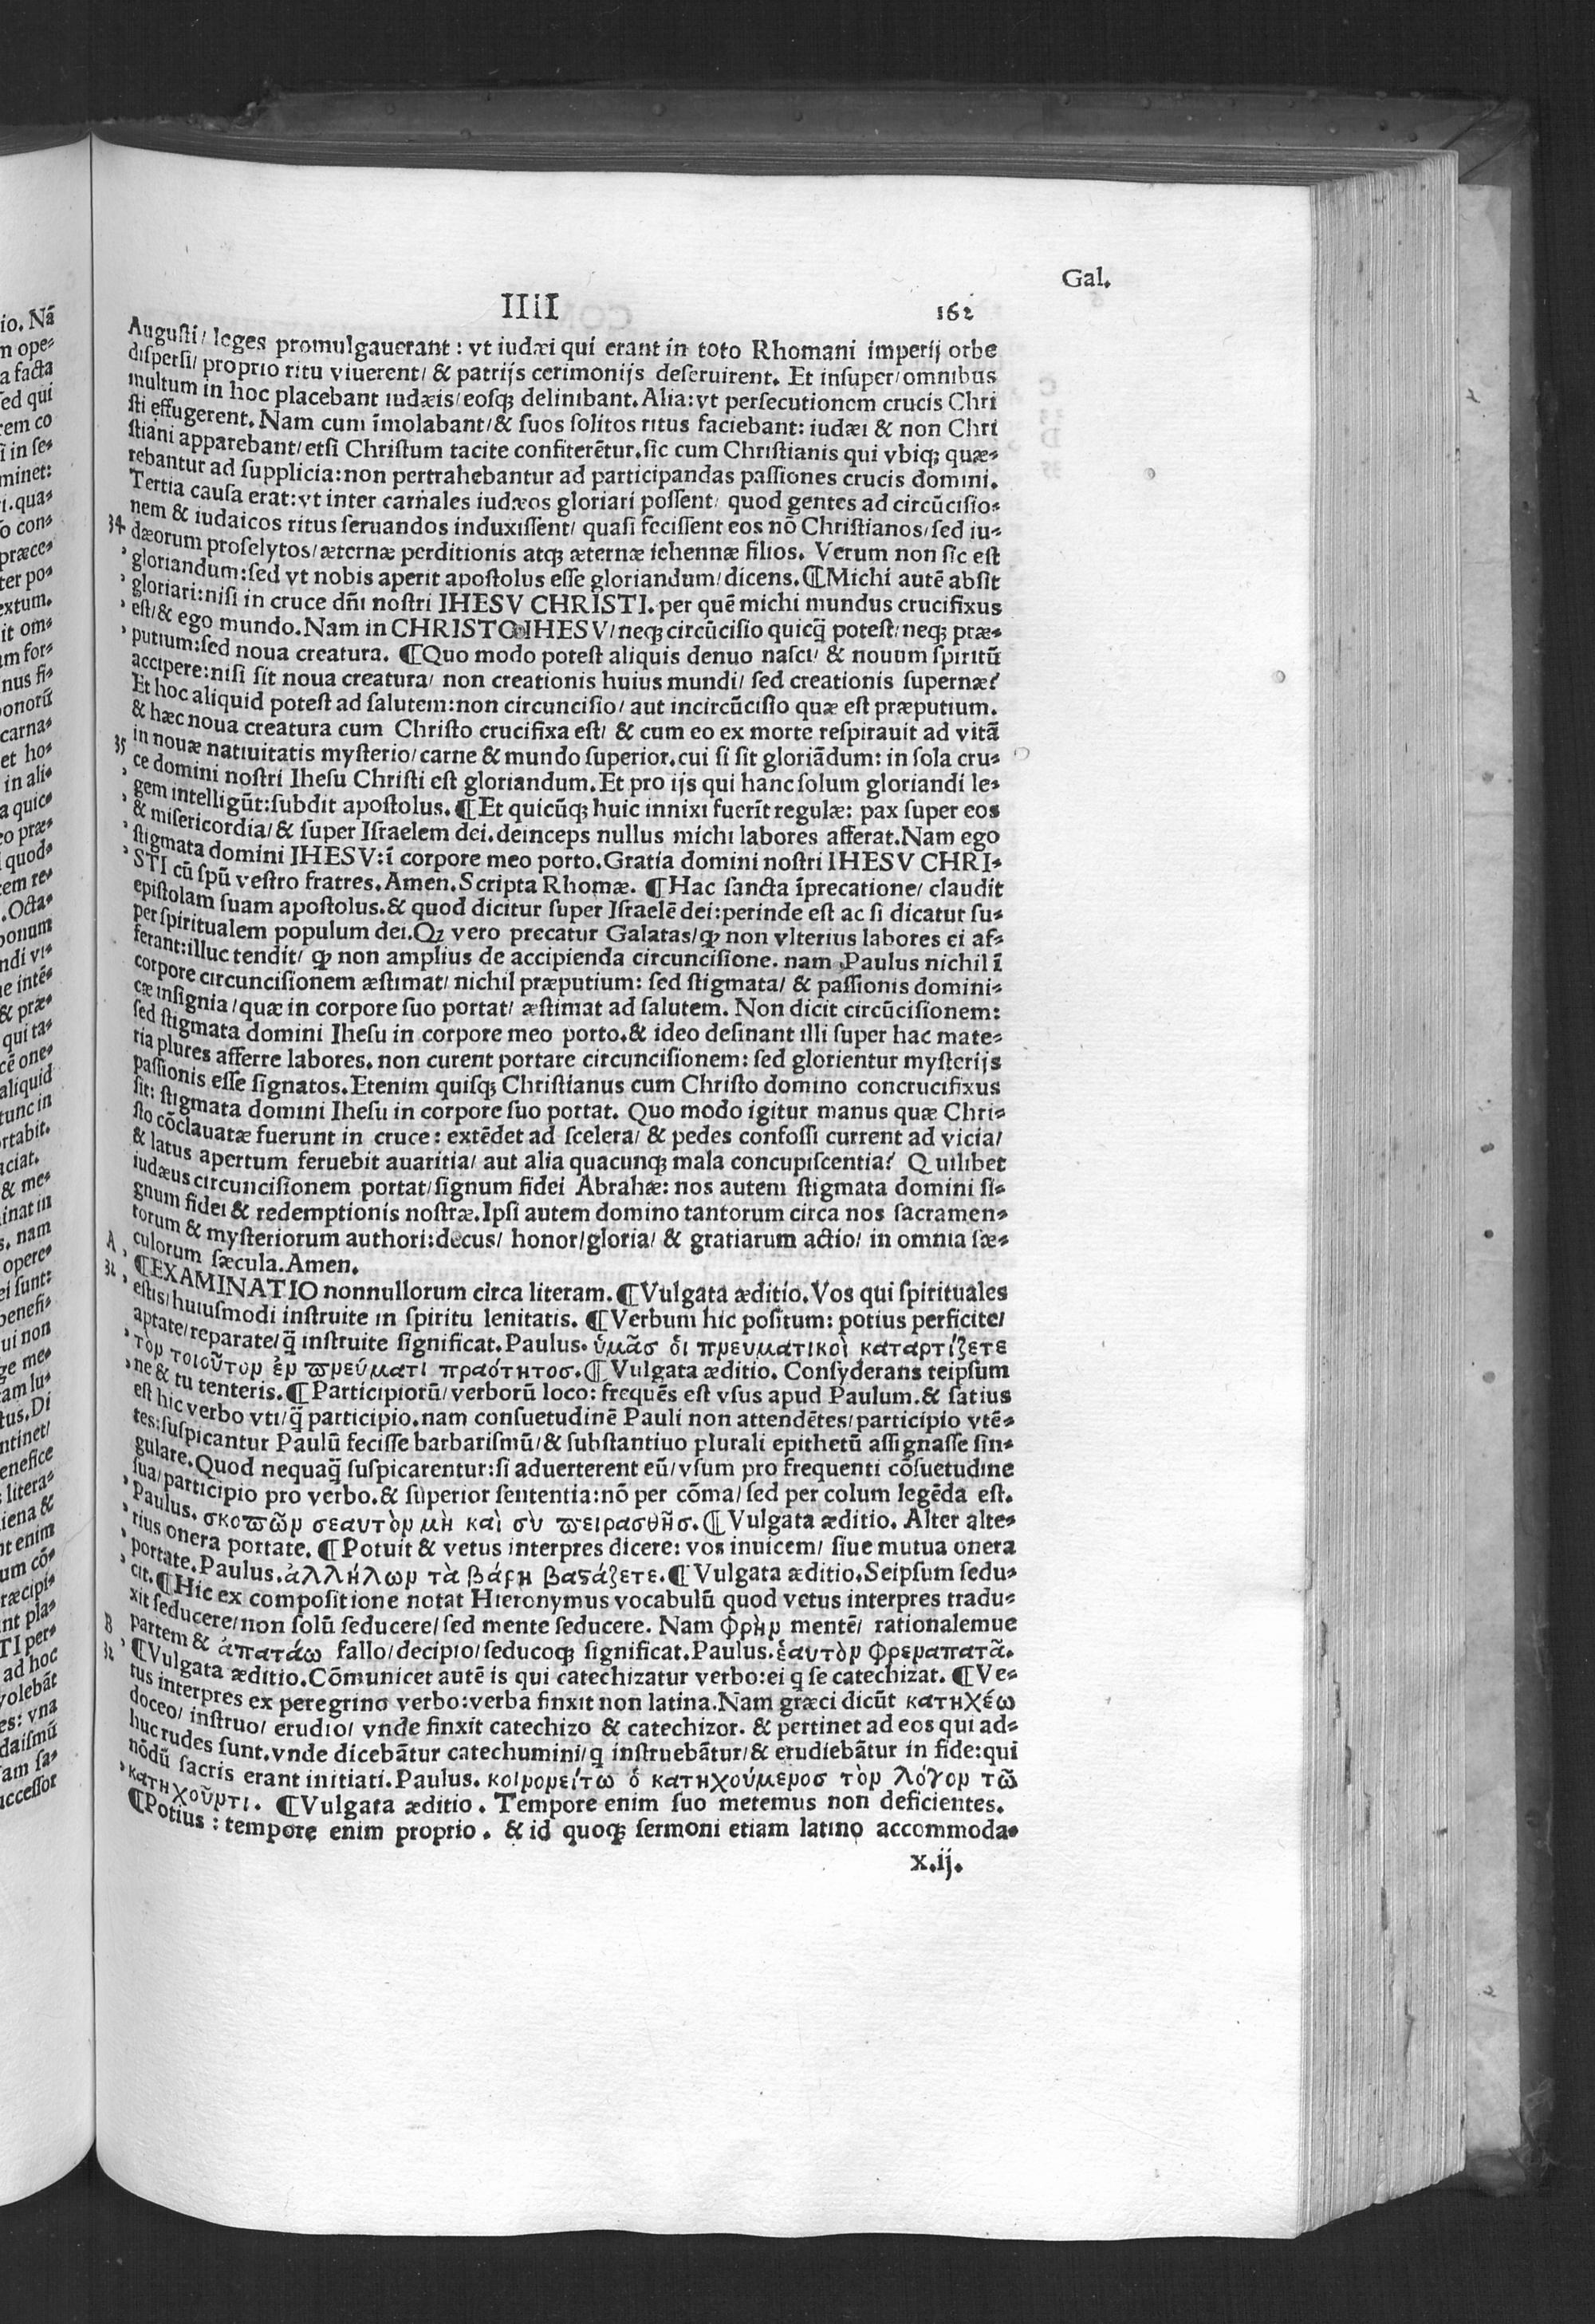 Gal.
IIII
162
Augusti/ leges promulgauerant: vt iudæi qui erant in toto Rhomani imperij orbe
dispersi/ proprio ritu viuerent/ & patrijs cerimonijs deseruirent. Et insuper/ omnibus
multum in hoc placebant iudæis/ eosq; delinibant. Alia: vt persecutionem crucis Chri
sti effugerent. Nam cum īmolabant/ & suos solitos ritus faciebant: iudæi & non Chri
stiani apparebant/ etsi Christum tacite confiterētur. sic cum Christianis qui vbiq; quæ-
rebantur ad supplicia: non pertrahebantur ad participandas passiones crucis domini.
Tertia causa erat: vt inter carnales iudæos gloriari possent/ quod gentes ad circūcisio-
nem & iudaicos ritus seruandos induxissent/ quasi fecissent eos nō Christianos/ sed iu-
34 dæorum proselytos/ æternæ perditionis atq; æternæ iehennæ filios. Verum non sic est
gloriandum: sed vt nobis aperit apostolus esse gloriandum/ dicens. ¶Michi autē absit
gloriari: nisi in cruce dñi nostri IHESV CHRISTI. per quē michi mundus crucifixus
est/ & ego mundo. Nam in CHRISTO IHESV/ neq; circūcisio quicq̄ potest/ neq; præ-
putium: sed noua creatura. ¶Quo modo potest aliquis denuo nasci/ & nouum spiritū
accipere: nisi sit noua creatura/ non creationis huius mundi/ sed creationis supernæ?
Et hoc aliquid potest ad salutem: non circuncisio/ aut incircūcisio quæ est præputium.
& hæc noua creatura cum Christo crucifixa est/ & cum eo ex morte respirauit ad vitā
35 in nouæ natiuitatis mysterio/ carne & mundo superior. cui si sit gloriādum: in sola cru-
ce domini nostri Ihesu Christi est gloriandum. Et pro ijs qui hanc solum gloriandi le-
gem intelligūt: subdit apostolus. ¶Et quicūq; huic innixi fuerīt regulæ: pax super eos
& misericordia/ & super Israelem dei. deinceps nullus michi labores afferat. Nam ego
stigmata domini IHESV: ī corpore meo porto. Gratia domini nostri IHESV CHRI-
STI cū spū vestro fratres. Amen. Scripta Rhomæ. ¶Hac sancta īprecatione/ claudit
epistolam suam apostolus. & quod dicitur super Israelē dei: perinde est ac si dicatur su-
per spiritualem populum dei. Qꝫ vero precatur Galatas/ ꝙ non vlterius labores ei af-
ferant: illuc tendit/ ꝙ non amplius de accipienda circuncisione. nam Paulus nichil ī
corpore circuncisionem æstimat/ nichil præputium: sed stigmata/ & passionis domini-
cæ insignia/ quæ in corpore suo portat/ æstimat ad salutem. Non dicit circūcisionem:
sed stigmata domini Ihesu in corpore meo porto. & ideo desinant illi super hac mate-
ria plures afferre labores. non curent portare circuncisionem: sed glorientur mysterijs
passionis esse signatos. Etenim quisq; Christianus cum Christo domino concrucifixus
sit: stigmata domini Ihesu in corpore suo portat. Quo modo igitur manus quæ Chri-
sto cōclauatæ fuerunt in cruce: extēdet ad scelera/ & pedes confossi current ad vicia/
& latus apertum feruebit auaritia/ aut alia quacunq; mala concupiscentia? Quilibet
iudæus circuncisionem portat/ signum fidei Abrahæ: nos autem stigmata domini si-
gnum fidei & redemptionis nostræ. Ipsi autem domino tantorum circa nos sacramen-
torum & mysteriorum authori: decus/ honor/ gloria/ & gratiarum actio/ in omnia sæ-
A culorum sæcula. Amen.
32 ¶EXAMINATIO nonnullorum circa literam. ¶Vulgata æditio. Vos qui spirituales
estis/ huiusmodi instruite in spiritu lenitatis. ¶Verbum hic positum: potius perficite/
aptate/ reparate/ q̄ instruite significat. Paulus. ὑμᾶσ ὁι πνευματικοὶ καταρτίζετε
τὸν τοιοῦτον ἐν ϖνεύματι πραότητοσ. ¶Vulgata æditio. Consyderans teipsum
ne & tu tenteris. ¶Participiorū/ verborū loco: frequēs est vsus apud Paulum. & satius
est hic verbo vti/ q̄ participio. nam consuetudinē Pauli non attendētes/ participio vtē-
tes: suspicantur Paulū fecisse barbarismū/ & substantiuo plurali epithetū assignasse sin-
gulare. Quod nequaq̄ suspicarentur: si aduerterent eū/ vsum pro frequenti cōsuetudine
sua/ participio pro verbo. & superior sententia: nō per cōma/ sed per colum legēda est.
Paulus. σκοϖῶν σεαυτὸν μὴ καὶ σὺ ϖειρασθῆσ. ¶Vulgata æditio. Alter alte-
rius onera portate. ¶Potuit & vetus interpres dicere: vos inuicem/ siue mutua onera
portate. Paulus. ἀλλήλων τὰ βάρη βαϛάζετε. ¶Vulgata æditio. Seipsum sedu-
cit. ¶Hic ex compositione notat Hieronymus vocabulū quod vetus interpres tradu-
xit seducere/ non solū seducere/ sed mente seducere. Nam φρὴν mentē/ rationalemue
partem & ἀπατάω fallo/ decipio/ seducoq; significat. Paulus. ἑαυτὸν φρεναπατᾶ.
B
32 ¶Vulgata æditio. Cōmunicet autē is qui catechizatur verbo: ei q̄ se catechizat. ¶Ve-
tus interpres ex peregrino verbo: verba finxit non latina. Nam græci dicūt κατηχέω
doceo/ instruo/ erudio/ vnde finxit catechizo & catechizor. & pertinet ad eos qui ad-
huc rudes sunt. vnde dicebātur catechumini/ q̄ instruebātur/ & erudiebātur in fide: qui
nōdū sacris erant initiati. Paulus. κοινονείτω ὁ κατηχούμενοσ τὸν λόγον τῶ
κατηχοῦντι. ¶Vulgata æditio. Tempore enim suo metemus non deficientes.
¶Potius: tempore enim proprio. & id quoq; sermoni etiam latino accommoda-
x.ij.